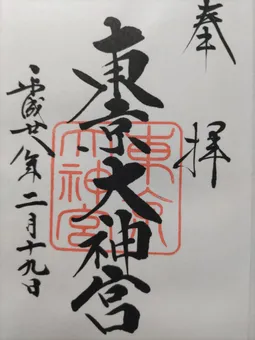 奉拝
東京大神宮
平成廿八年二月十九日
東京
大神宮